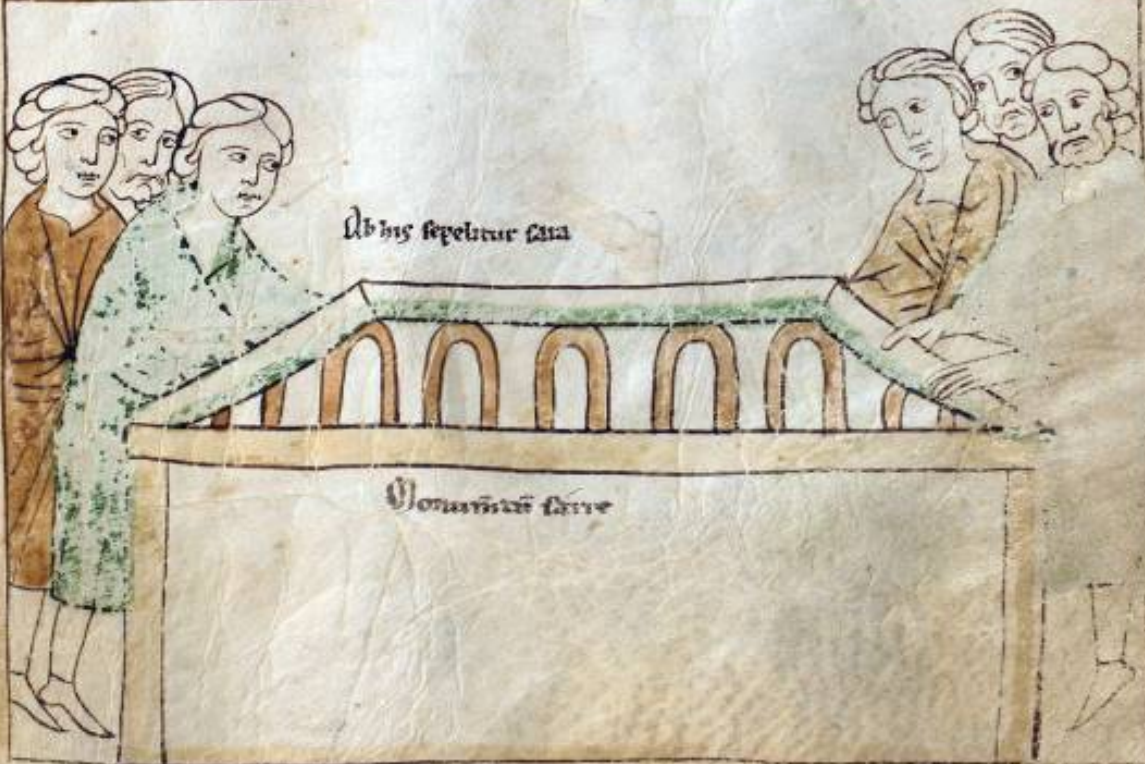 Ab his sepelitur sara
Monum̄tū sarre